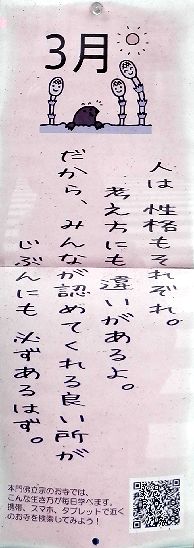 3月
人は 性格もそれぞれ。
考え方にも 違いがあるよ。
だから、みんなが認めてくれる良い所が
じぶんにも 必ずあるはず。
本門佛立宗のお寺では、
こんな生き方が毎日学べます。
携帯、スマホ、タブレットで近く
のお寺を検索してみよう！